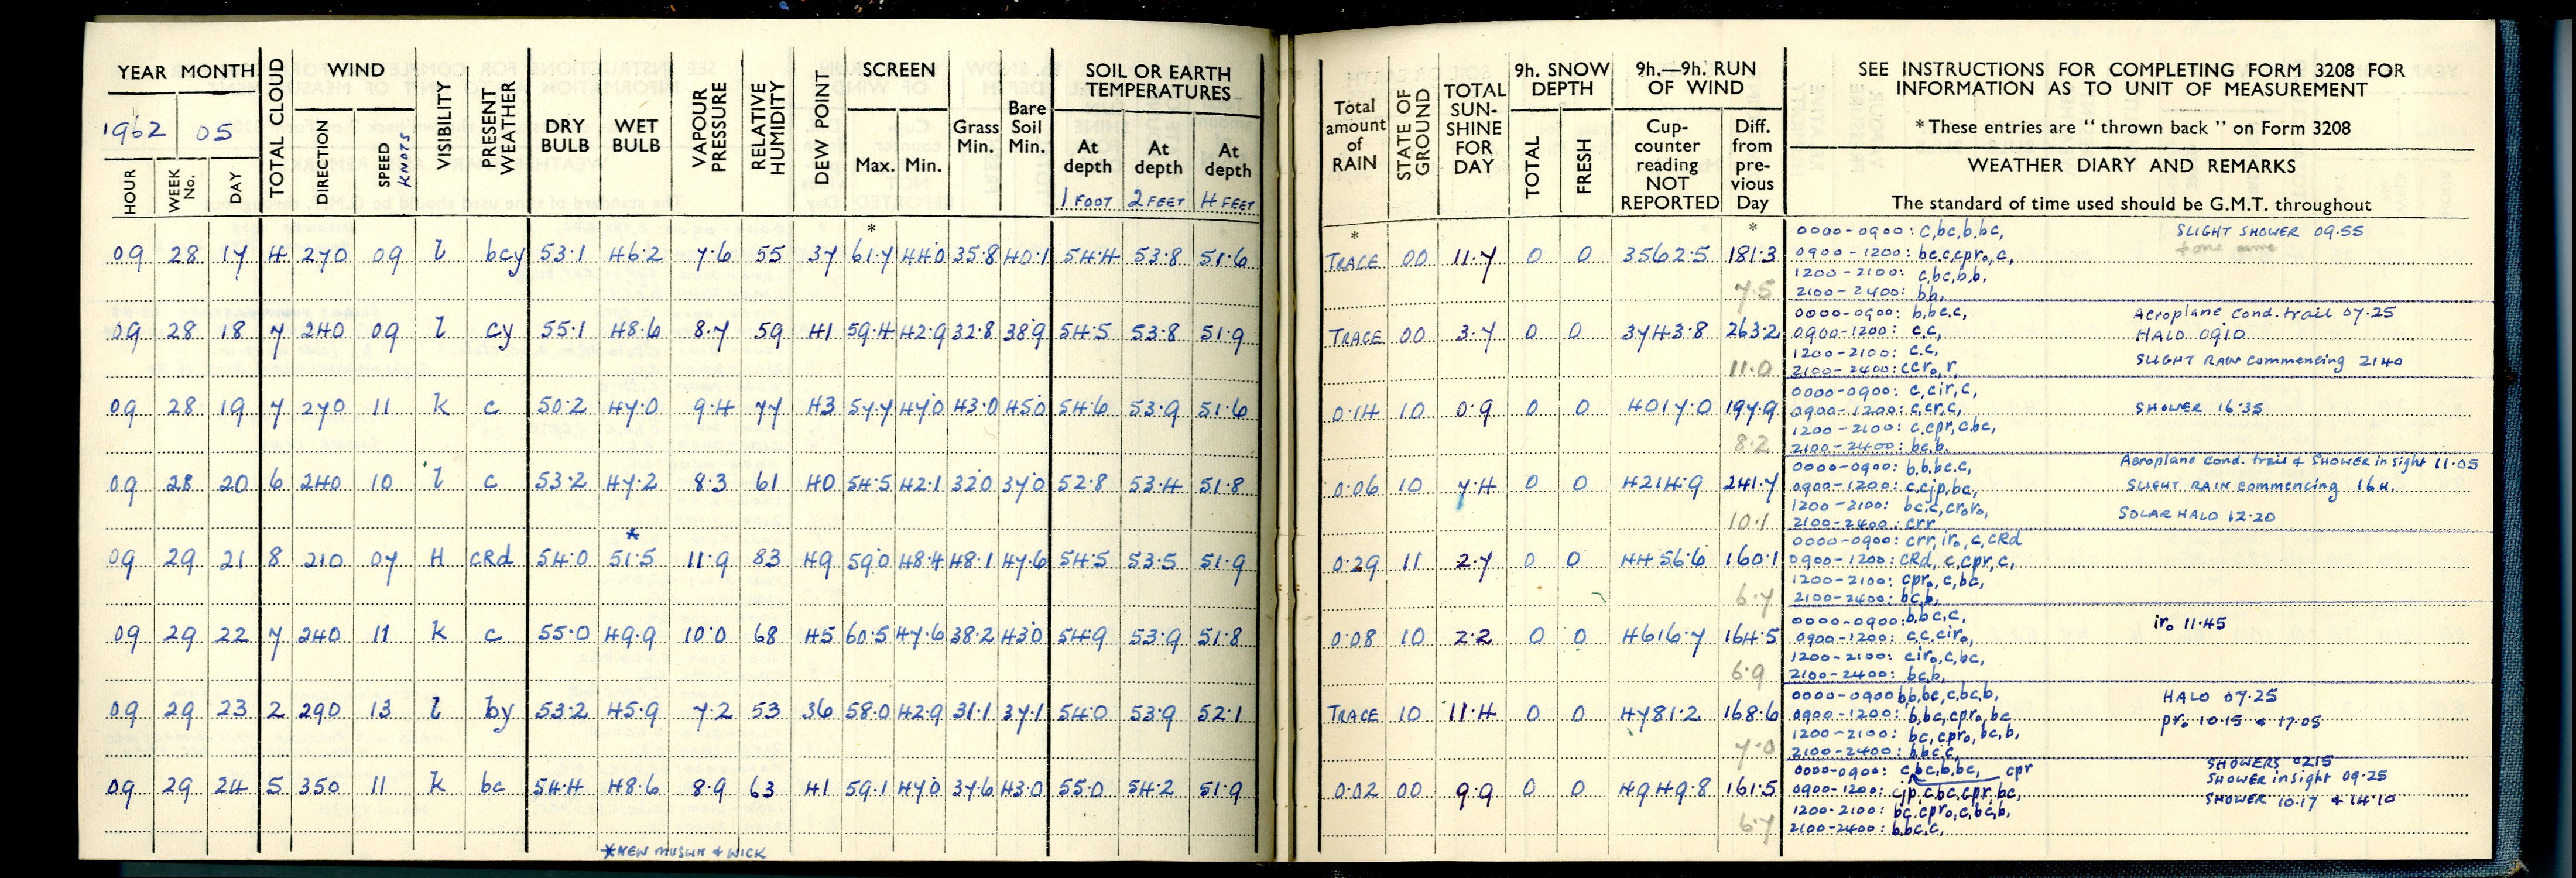 YEAR MONTH TOTAL CLOUD WIND VISIBILITY PRESENT WEATHER DRY BULB WET BULB VAPOUR PRESSURE RELATIVE HUMIDITY DEW POINT SCREEN Grass Min. Bare Soil Min. SOIL OR EARTH TEMPERATURES
1962 05 DIRECTION SPEED KNOTS Max. Min. At depth At depth At depth
HOUR WEEK No. DAY 1 FOOT 2 FEET 4 FEET
*
09 28 17 4 270 09 l bcy 53.1 46.2 7.6 55 37 61.7 44.0 35.8 40.1 54.4 53.8 51.6
09 28 18 7 240 09 l cy 55.1 48.6 8.7 59 41 59.4 42.9 32.8 38.9 54.5 53.8 51.9
09 28 19 7 270 11 k c 50.2 47.0 9.4 77 43 57.7 47.0 43.0 45.0 54.6 53.9 51.6
09 28 20 6 240 10 l c 53.2 47.2 8.3 61 40 54.5 42.1 32.0 37.0 52.8 53.4 51.8
*
09 29 21 8 210 07 H cRd 54.0 51.5 11.9 83 49 59.0 48.4 48.1 47.6 54.5 53.5 51.9
09 29 22 7 240 11 k c 55.0 49.9 10.0 68 45 60.5 47.6 38.2 43.0 54.9 53.9 51.8
09 29 23 2 290 13 l by 53.2 45.9 7.2 53 36 58.0 42.9 31.1 37.1 54.0 53.9 52.1
09 29 24 5 350 11 k bc 54.4 48.6 8.9 63 41 59.1 47.0 37.6 43.0 55.0 54.2 51.9
*NEW MUSLIN & WICK
Total amount of RAIN STATE OF GROUND TOTAL SUN-SHINE FOR DAY 9h. SNOW DEPTH 9h.—9h. RUN OF WIND
TOTAL FRESH Cup-counter reading NOT REPORTED Diff. from pre-vious Day
SEE INSTRUCTIONS FOR COMPLETING FORM 3208 FOR
INFORMATION AS TO UNIT OF MEASUREMENT
* These entries are "thrown back" on Form 3208
WEATHER DIARY AND REMARKS
The standard of time used should be G.M.T. throughout
* *
TRACE 00 11.7 0 0 3562.5 181.3
7.5
0000-0900: c,bc,b,bc, SLIGHT SHOWER 09.55
0900-1200: bc,c,cpr₀,c,
1200-2100: c,bc,b,b,
2100-2400: bb,
TRACE 00 3.7 0 0 3743.8 263.2
11.0
0000-0900: b,bc,c, Aeroplane Cond. trail 07.25
0900-1200: c,c, HALO 0910
1200-2100: c.c,
2100-2400: ccr₀,r, SLIGHT RAIN commencing 2140
0.14 10 0.9 0 0 4017.0 197.9
8.2
0000-0900: c,cir,c,
0900-1200: c,cr,c, SHOWER 16.35
1200-2100: c,cpr,c,bc,
2100-2400: bc,b,
0.06 10 7.4 0 0 4214.9 241.7
10.1
0000-0900: b.b.bc.c, Aeroplane Cond. trail & SHOWER in sight 11.05
0900-1200: c,cjp,bc, SLIGHT RAIN commencing
1200-2100: bc.c,cr₀r₀, SOLAR HALO 12.20
2100-2400: crr
0.29 11 2.7 0 0 4456.6 160.1
6.7
0000-0900: crr,ir₀,c,cRd
0900-1200: cRd, c,cpr,c,
1200-2100: cpr₀,c,bc,
2100-2400: bc,b,
0.08 10 2.2 0 0 4616.7 164.5
6.9
0000-0900: b,bc,c, ir₀ 11.45
0900-1200: c.c.cir₀,
1200-2100: cir₀,c,bc,
2100-2400: bc,b,
TRACE 10 11.4 0 0 4781.2 168.6
7.0
0000-0900 bb,bc,c,bc,b, HALO 07.25
0900-1200: b,bc,cpr₀,bc pr₀ 10.15 & 17.05
1200-2100: bc,cpr₀,bc,b,
2100-2400: b,bc,c,
0.02 00 9.9 0 0 4949.8 161.5
6.7
SHOWERS 0215
0000-0900: c,bc,b,bc, cpr SHOWER in sight 09.25
0900-1200: cjp,c,bc,cpr,bc, SHOWER 10.17 & 14.10
1200-2100: bc.cpr₀,c,bc,b,
2100-2400: b,bc.c,